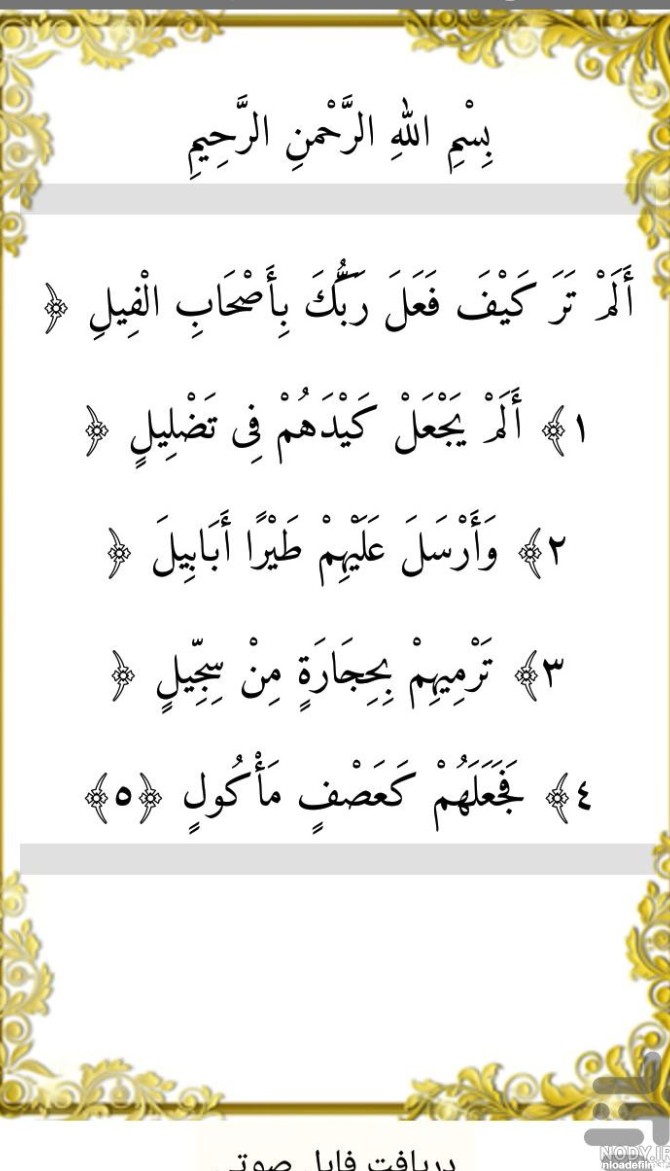 بِسْمِ اللهِ الرَّحْمنِ الرَّحِيمِ
أَلَمْ تَرَ كَيْفَ فَعَلَ رَبُّكَ بِأَصْحَابِ الْفِيلِ ﴿
١﴾ أَلَمْ يَجْعَلْ كَيْدَهُمْ فِى تَضْلِيلٍ ﴿
٢﴾ وَأَرْسَلَ عَلَيْهِمْ طَيْرًا أَبَابِيلَ ﴿
٣﴾ تَرْمِيهِمْ بِحِجَارَةٍ مِنْ سِجِّيلٍ ﴿
٤﴾ فَجَعَلَهُمْ كَعَصْفٍ مَأْكُولٍ ﴿٥﴾
دریافت فایل صوتی
NODY.IR